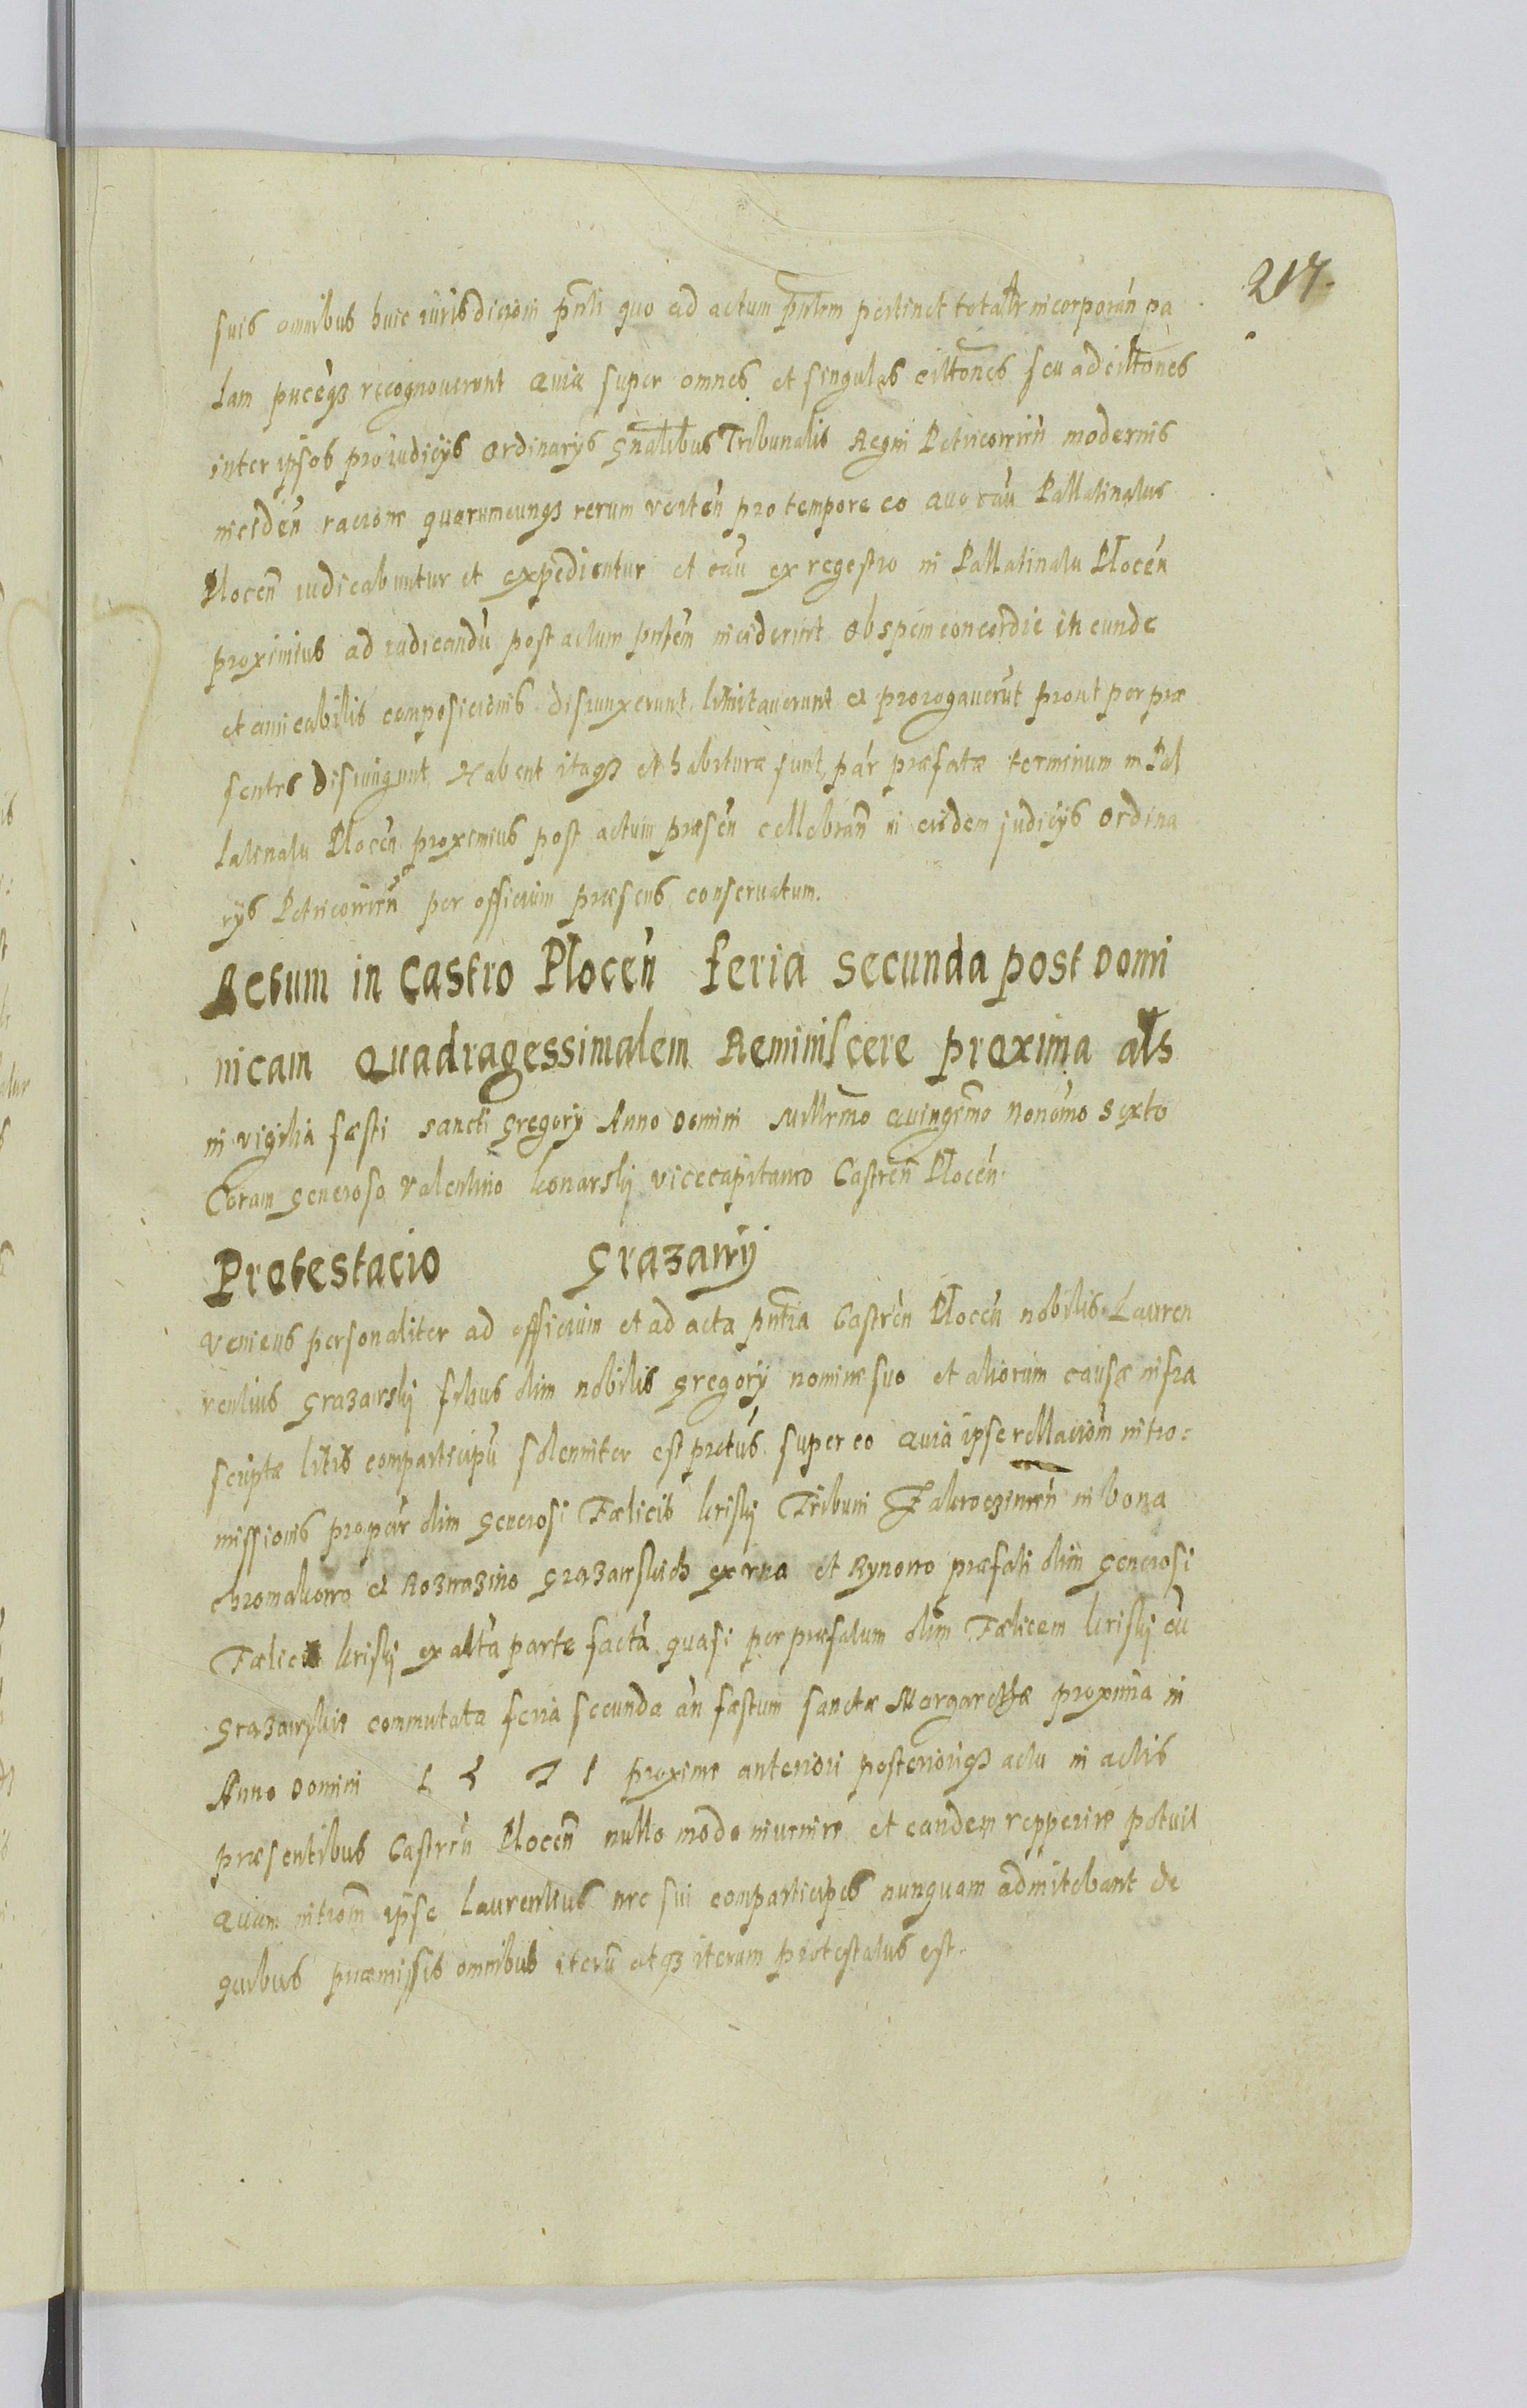 217.
suis omnibus huic iurisdicioni pnti quo ad actum pntem pertinet totalr incorporan pa
lam puceqз recognoverunt Quia super omnes et singulas citones seu adcitones
inter ipsos pro iudicijs Ordinarijs Gnalibus Tribunalis Regni Petricovien modernis
inciden racione quarumcunqз rerum verten pro tempore eo quo cau Pallatinatus
Plocen iudicabuntur et expedientur et cau ex regestro in Pallatinatu Plocen
proximius ad iudicandu post actum pntem inciderint Ob spem concordie ineunde
et amicabilis composicionis disiunxerunt limitaverunt et prorogaverut prout per præ
sentes disiungunt Habent itaqз et habituræ sunt par præfatæ terminum in Pal
latinatu Plocen proximius post actum præsen cellebran in eisdem judicijs Ordina
rijs Petricovien per officium præsens conservatum.
Actum in Castro Plocen feria secunda post Domi
nicam Quadragessimalem Reminiscere proxima als
in vigilia fæsti sancti Gregorij Anno Domini Millrmo Quingrmo Nonomo Sexto
Coram Generoso Valentino Konarskij vicecapitaneo Castren Plocen.
Protestacio Grazawij
Veniens personaliter ad officium et ad acta pntia Castren Plocen nobilis Lauren
rentius Grazawskij filius olim nobilis Gregorij nomine suo et aliorum causæ infra
scriptæ litis comparticipu solenniter est prctus super eo Quia ipse rellaciom intro=
missionis pro par olim Generosi Fælicis Kriskj Tribuni Zakroczimen in bona
chromakowo et Rozwazino Grazawskich ex una et Rynowo præfati olim Generosi
Fælicis Kriskj ex alta parte facta quasi per præfatum olim Fælicem Kriskj cu
Grazawskie commutata feria secunda an fæstum sanctæ Margarethæ proxima in
Anno Domini proxime anteriori posterioriqз actu in actis
præsentibus Castren Plocen nullo modo invenire et eandem repperire potuit
Quum introm ipse Laurentius nec sui comparticipes nunquam admitebant De
quibus præmissis omnibus iteru atqз iterum protestatus est.